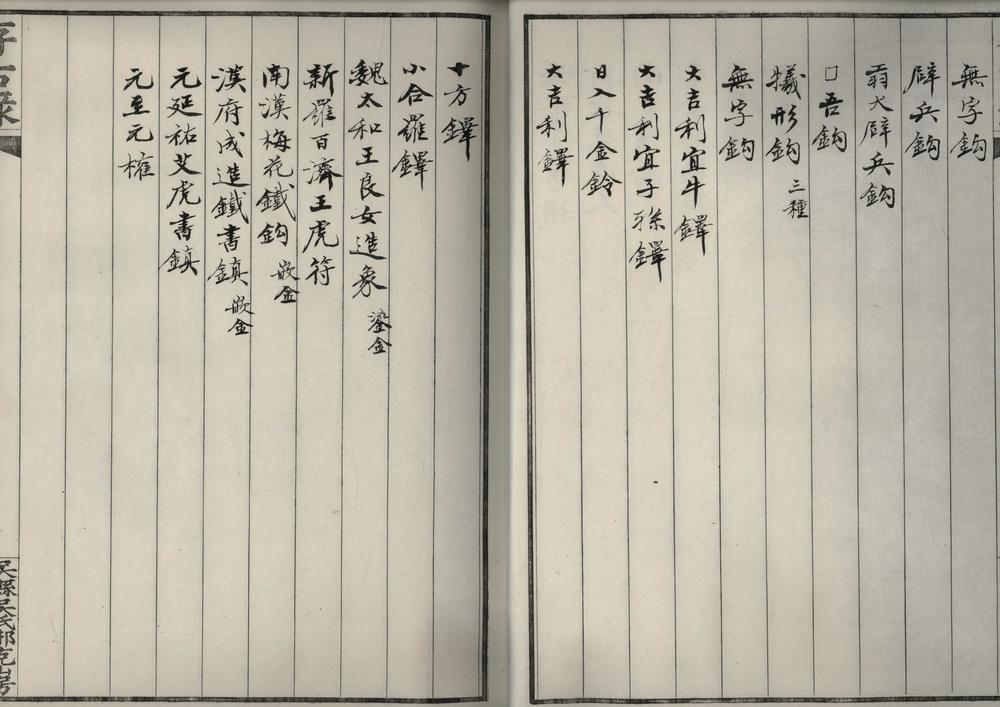 無字鈎
辟兵鈎
翁大辟兵鈎
□吾鈎
犠形鈎 三種
無字鈎
大吉利宜牛鐸
大吉利宜子孫鐸
日入千金鈴
大吉利鐸
十方鐸
小合羅鐸
魏太和王良女造象 鎏金
新羅百濟王虎符
南漢梅花鐵鈎 嵌金
漢府成造鐵書鎮 嵌金
元延祐艾虎書鎮
元至元權
吳縣吳氏邢克山房